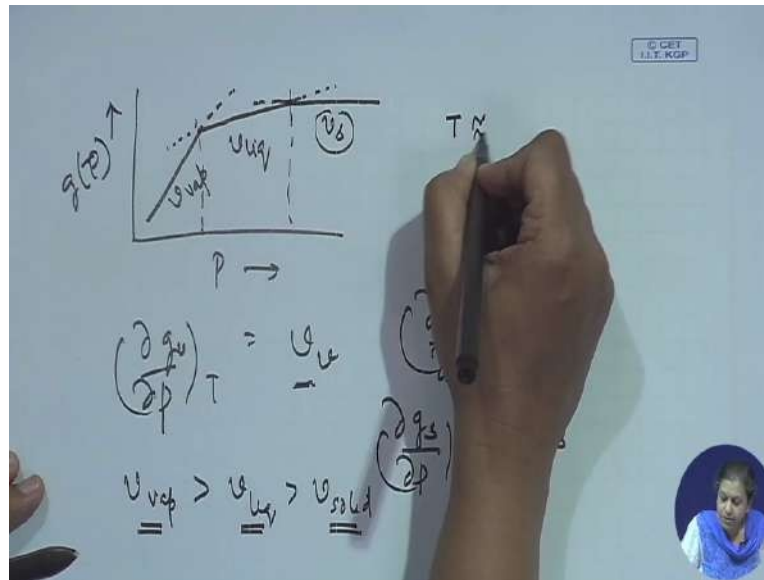 © CET
I.I.T. KGP
g(P) ↑
v vap
v liq
v s
T ≈
P →
(∂g v / ∂P) T = v v
(∂g s / ∂P)
v vap > v liq > v solid